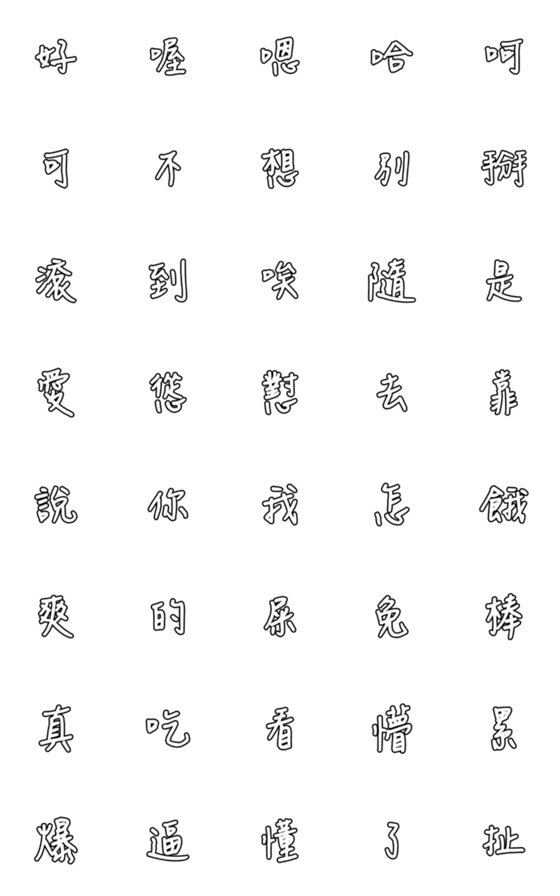 好 喔 嗯 哈 呵
可 不 想 別 掰
滾 到 唉 隨 是
愛 慫 懟 去 靠
說 你 我 怎 餓
爽 的 尿 免 棒
真 吃 看 懵 累
爆 逼 懂 了 扯